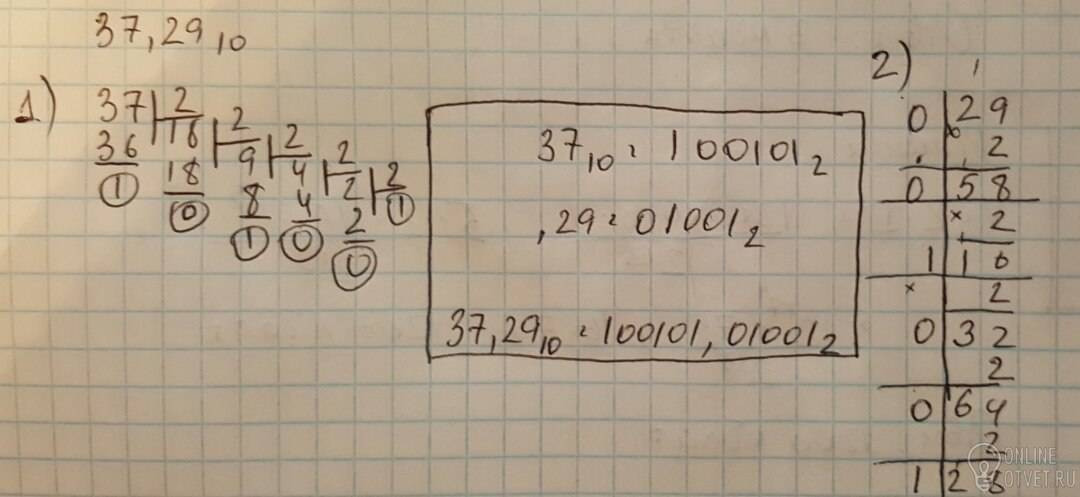 37,29₁₀
1)
37 | 2
36 | 18 | 2
1 | 18 | 9 | 2
0 | 8 | 4 | 2
1 | 4 | 2 | 2
0 | 2 | 1
0
37₁₀ = 100101₂
,29 = 01001₂
37,29₁₀ = 100101,01001₂
2)
1
0 | 29
2
0 | 58
× 2
1 | 16
× 2
0 | 32
2
0 | 64
2
1 | 28
ONLINE
OTVET.RU